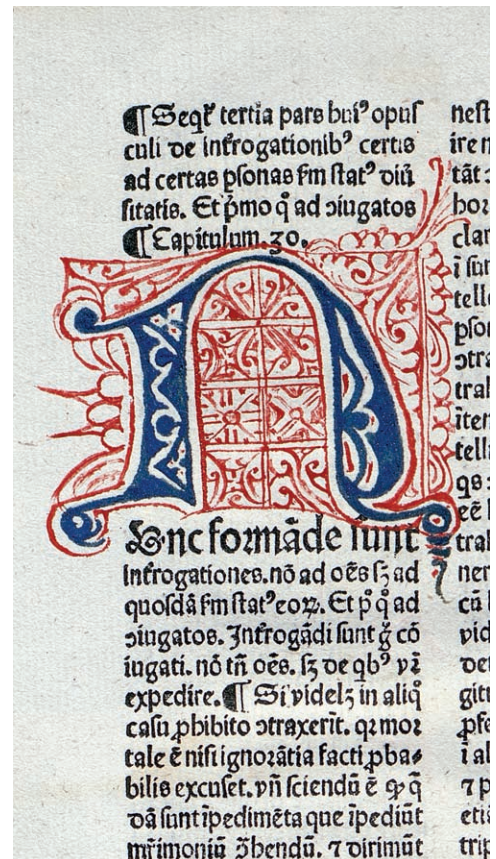 ¶ Seqr̄ tertia pars huiꝰ opus
culi de inťrogationibꝰ certis
ad certas ꝑsonas ẜm statꝰ diũ
sitatis. Et p̃mo q̊ ad ꝯiugatos
¶ Capitulum.30.
N
Unc formãde sunt
Inťrogationes.nõ ad oẽs sꝫ ad
quosdã ẜm statꝰ eoꝝ. Et p̊ q̊ ad
ꝯiugatos. Inťrogãdi sunt g̊ cõ
iugati. nõ tñ oẽs. sꝫ de qbꝰ vĩ
expedire. ¶ Si videlꝫ in aliq̊
casu ꝓhibito ꝯtraxerĩt. qꝛ mor
tale ẽ nisi ignorãtia facti ꝓba⸗
bilis excuset. vñ sciendũ ẽ ꝙ q̃
dã sunt ĩpedimẽta que ĩpediũt
mr̃imoniũ ꝯ̃hendũ. ⁊ dirimũt
nest
ire n
tãt ꝯ
hor
clar
ĩ sun
telle
ꝑson
ꝯtra
tral
ĩten
tell
qs ꝯ
eẽ
tral
ner
cũ
vid
det
gitt
ꝑfe
ĩ al
⁊ p
etiã
trip